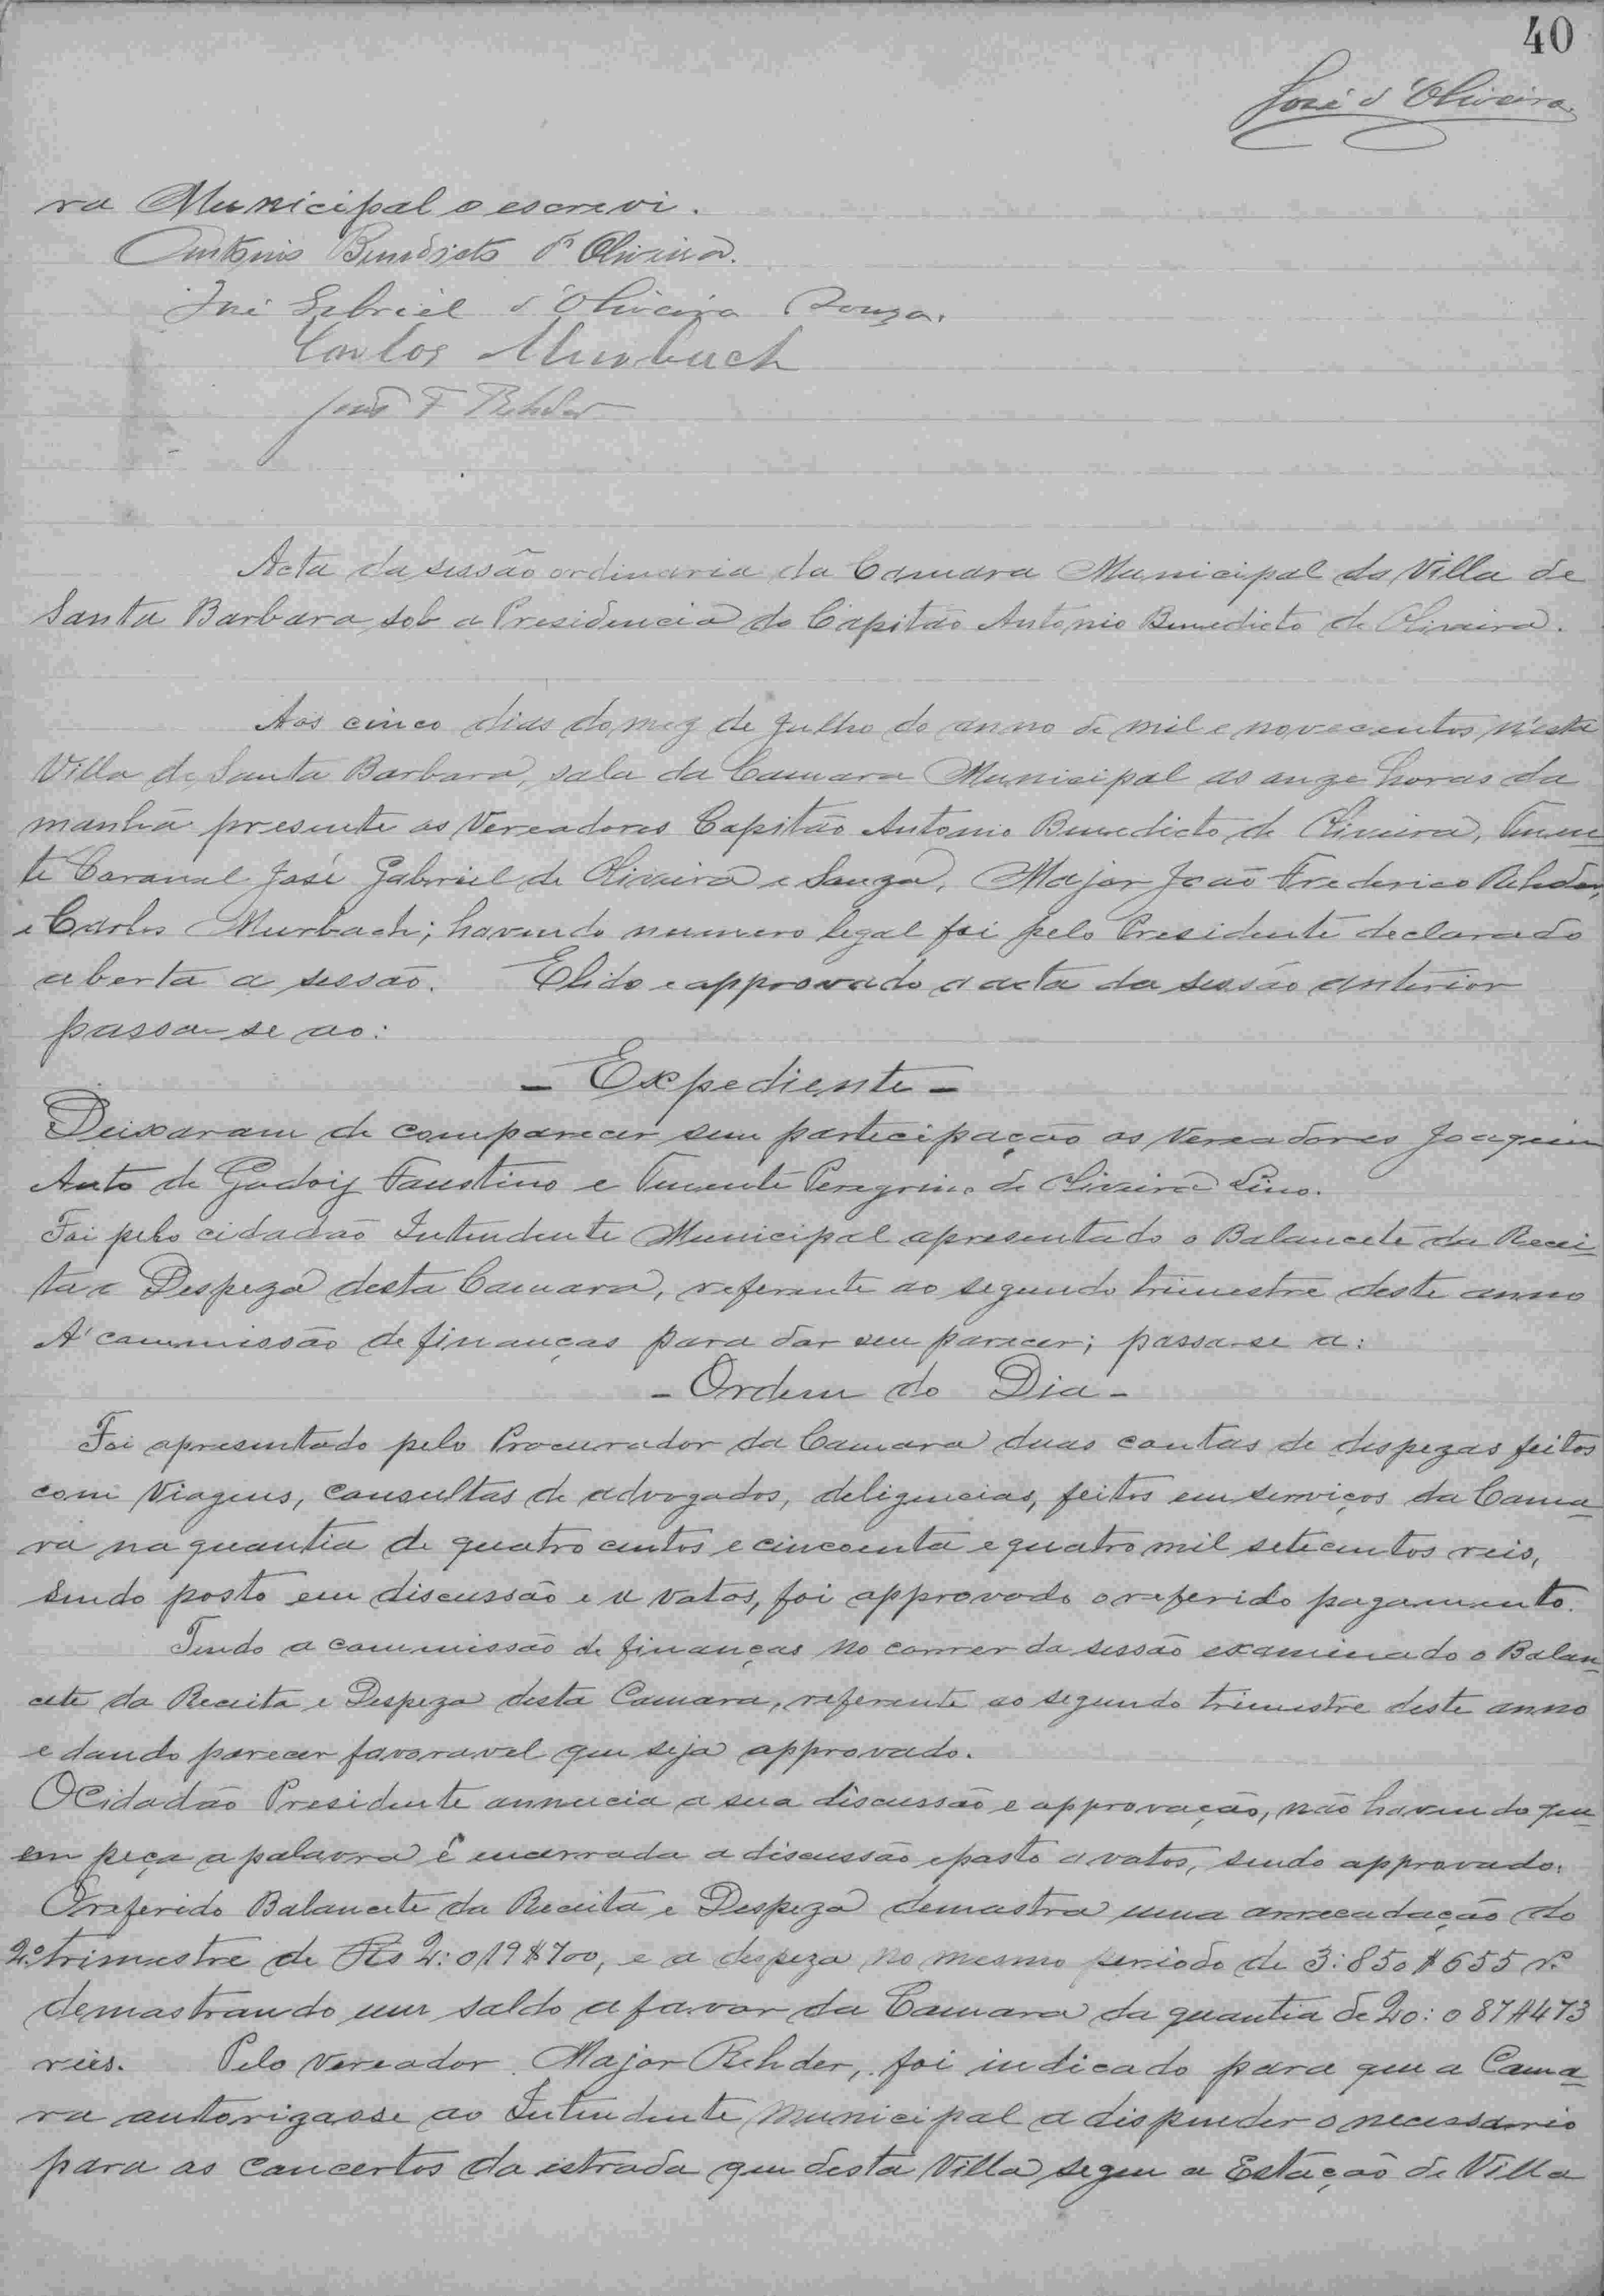 40
José d'Oliveira
ra Municipal o escrevi.
Antonio Benedicto d' Oliveira.
José Gabriel d'Oliveira Souza.
Carlos Murbach
João F Rehder
Acta da sessão ordinaria da Camara Municipal da Villa de
Santa Barbara sob a Presidencia do Capitão Antonio Benedicto de Oliveira.
Aos cinco dias do mez de Julho do anno de mil e novecentos, n'esta
Villa de Santa Barbara, sala da Camara Municipal as onze horas da
manhã presente os Vereadores Capitão Antonio Benedicto de Oliveira, Tenen
te Coronel José Gabriel de Oliveira e Souza, Major João Frederico Rehder,
e Carlos Murbach; havendo numero legal foi pelo Presidente declarado
aberta a sessão. E lido e approvado a acta da sessão anterior
passa-se ao:
- Expediente -
Deixaram de comparecer sem participação os Vereadores Joaquim
Anto de Godoy Faustino e Tenente Peregrino de Oliveira Lino.
Foi pelo cidadão Intendente Municipal apresentado o Balancete da Recei
ta e Despeza desta Camara, referente ao segundo trimestre deste anno
A' commissão de finanças para dar seu parecer; passa-se a:
- Ordem do Dia -
Foi apresentado pelo Procurador da Camara duas contas de despezas feitos
com Viagens, consultas de advogados, deligencias, feitos em serviços da Cama
ra na quantia de quatro centos e cincoenta e quatro mil setecentos reis,
sendo posto em discussão e a votos, foi approvado o referido pagamento.
Tendo a commissão de finanças no correr da sessão examinado o Balan
cete da Receita e Despeza desta Camara, referente ao segundo trimestre deste anno
e dando parecer favoravel que seja approvado.
O Cidadão Presidente annuncia a sua discussão e approvação, não havendo qu
em peça a palavra é encerrada a discussão e posto a votos, sendo approvado.
O referido Balancete da Receita e Despeza demostra uma arrecadação do
2º trimestre de Rs 2:019$700, e a despeza no mesmo periodo de 3:850$655 rs
demostrando um saldo a favor da Camara da quantia de 20:087$473
reis. Pelo Vereador Major Rehder, foi indicado para que a Cama
ra autorizasse ao Intendente Municipal a dispender o necessario
para as concertos da estrada que desta Villa segue a Estação de Villa